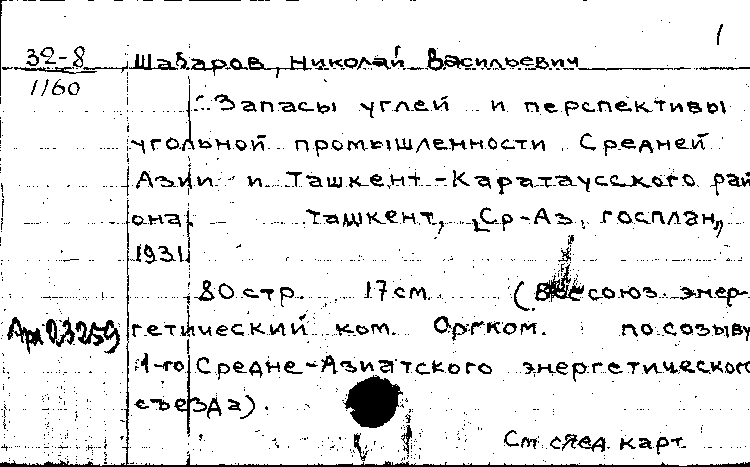 1
32-8 Шабаров, Николай Васильевич
1160
Запасы углей и перспективы
угольной промышленности Средней
Азии и Ташкент-Каратаусского рай
она. Ташкент, „Ср-Аз, госплан„
1931.
80 стр. 17 см. (Всесоюз. энер-
Арх 23259 гетический ком. Оргком. по созыву
1-го Средне-Азиатского энергетического
съезда).
См след. карт